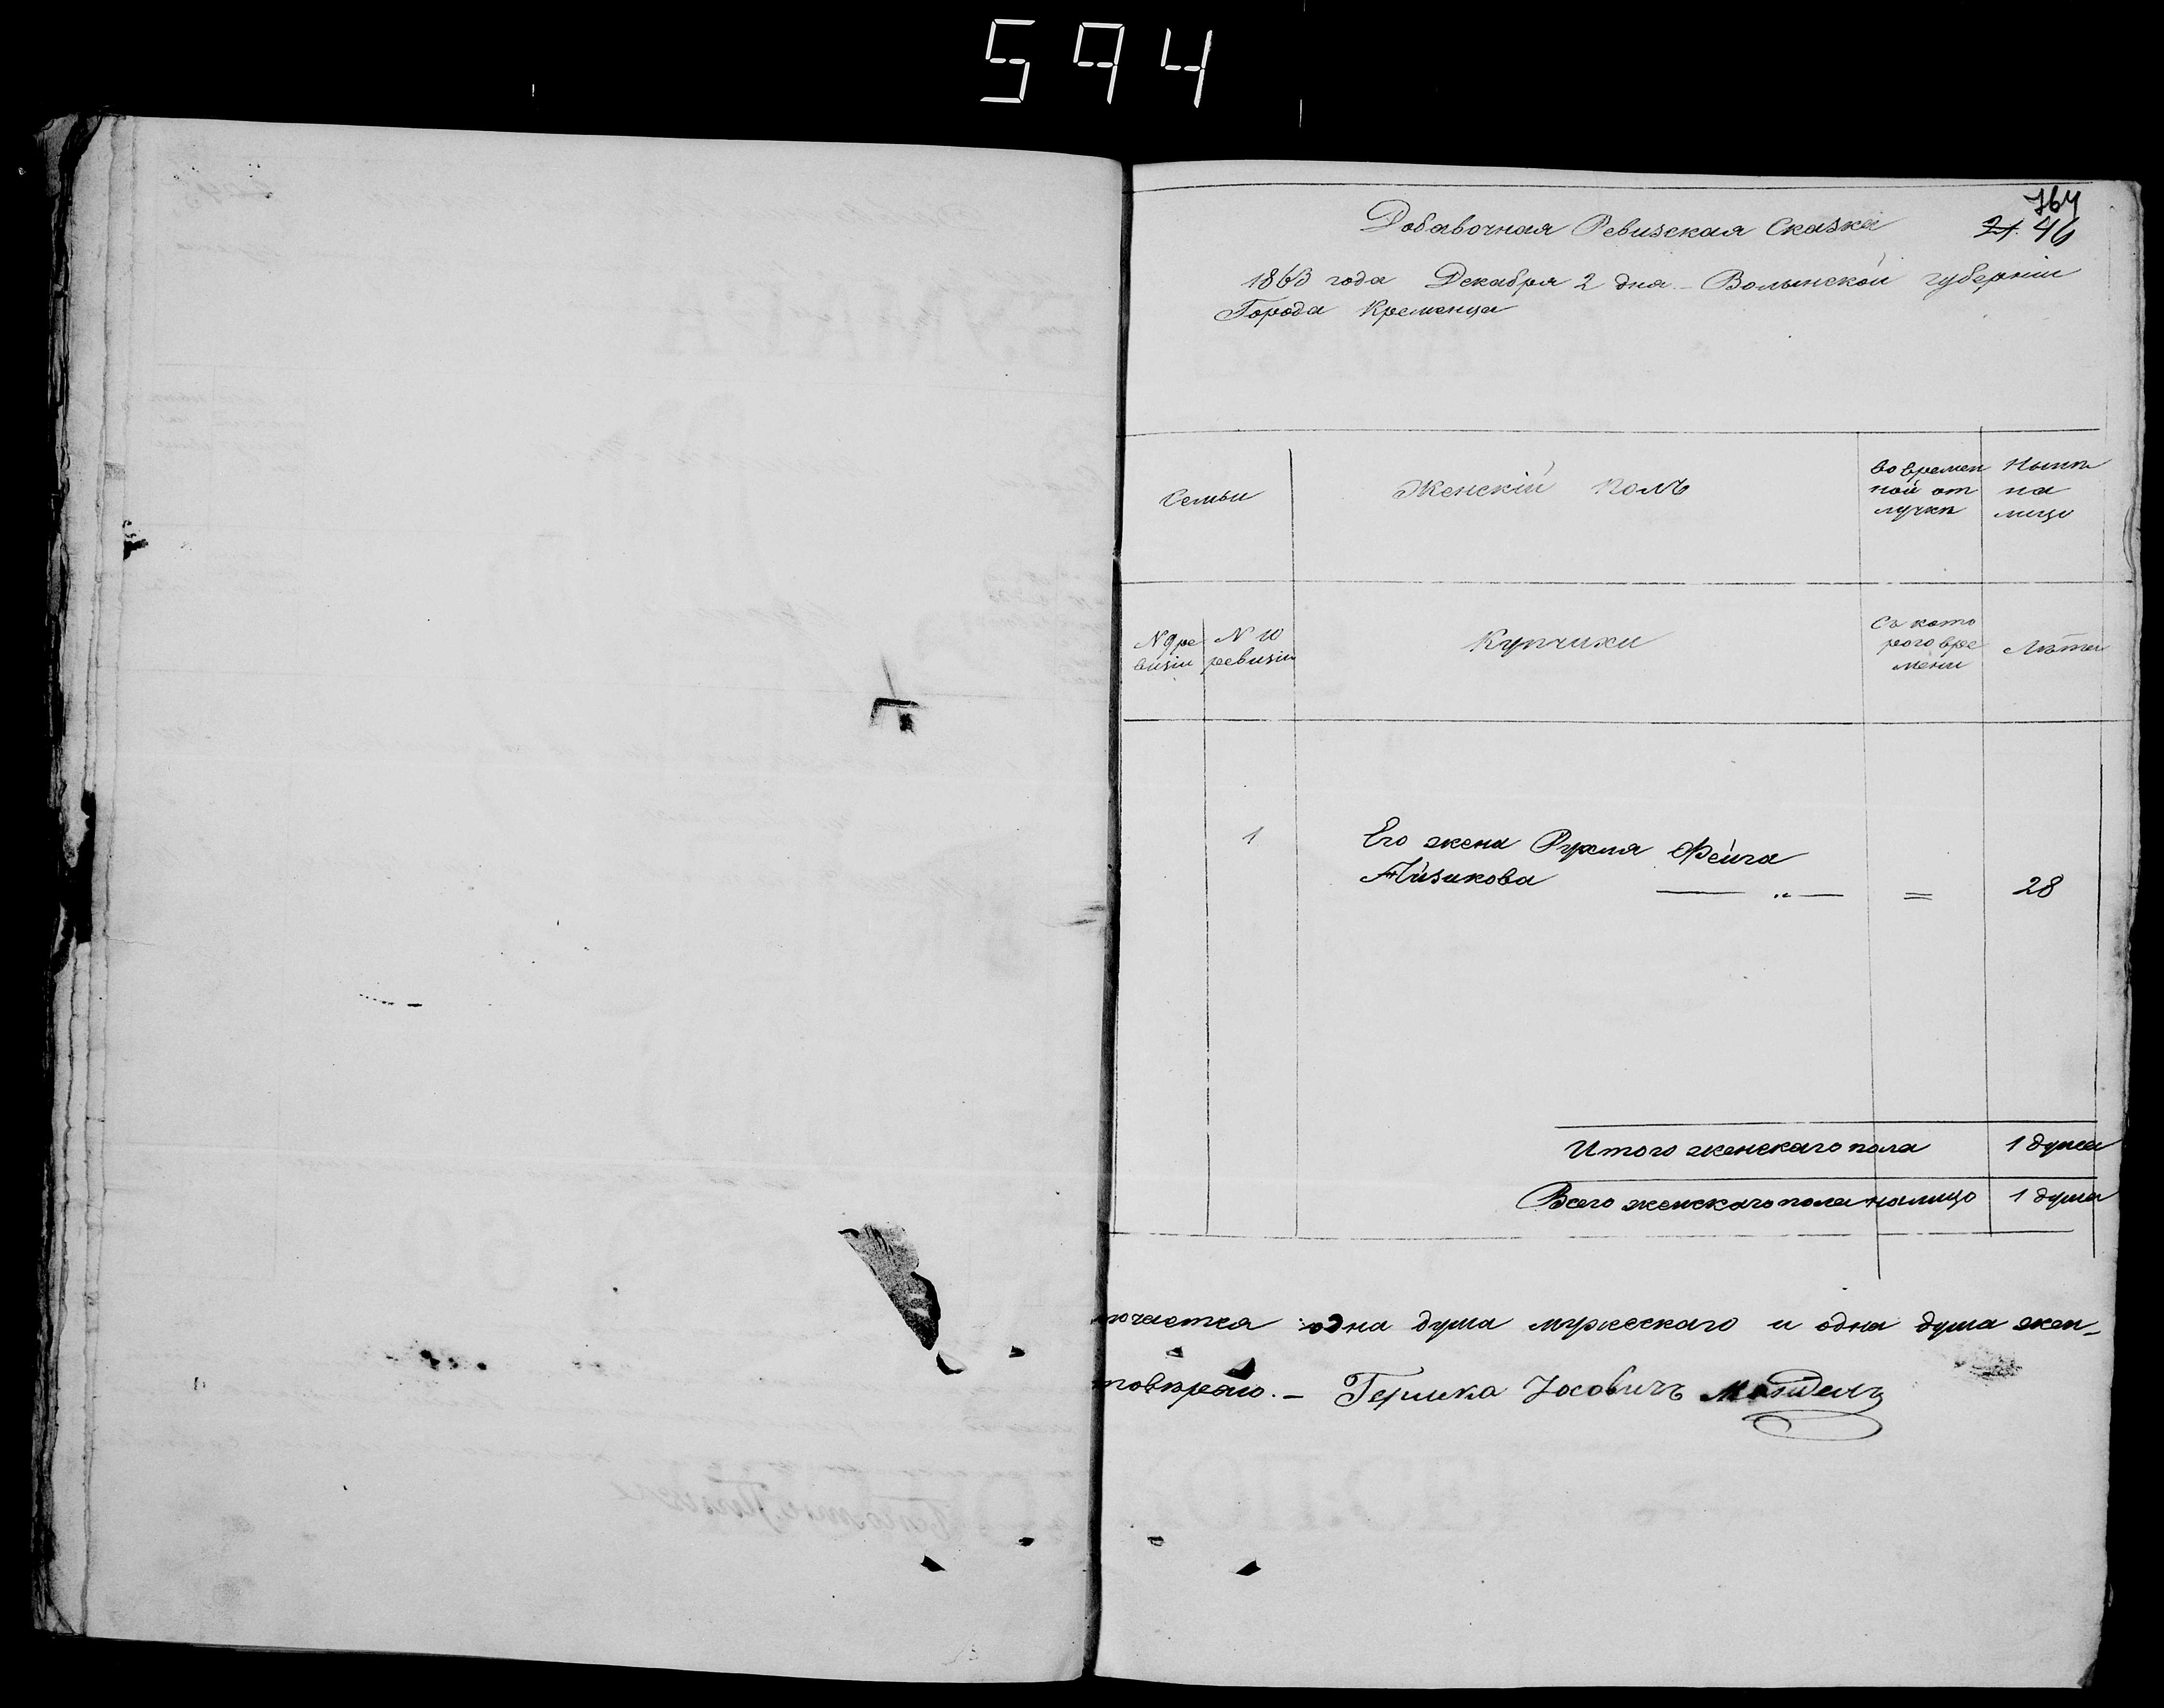 594
764
Добавочная Ревизская Сказка 21. 46
1863 года Декабря 2 дня – Волынской губерніи
Города Кременца
Семьи
Женскій полъ
Во времен
ной от
лучкѣ
Нынѣ
на
лицо
N 9 ре
визіи
N 10
ревизіи
Купчихи
Съ кото
рого вре
мени
Лѣта
1 Его жена Рухля Фейга
Айзикова — „ — = 28
Итого женскаго пола 1 душа
Всего женскаго пола налицо 1 душа
лючается одна душа мужескаго и одна душа жен-
товѣряю. – Гершка Іосовичъ Мандель